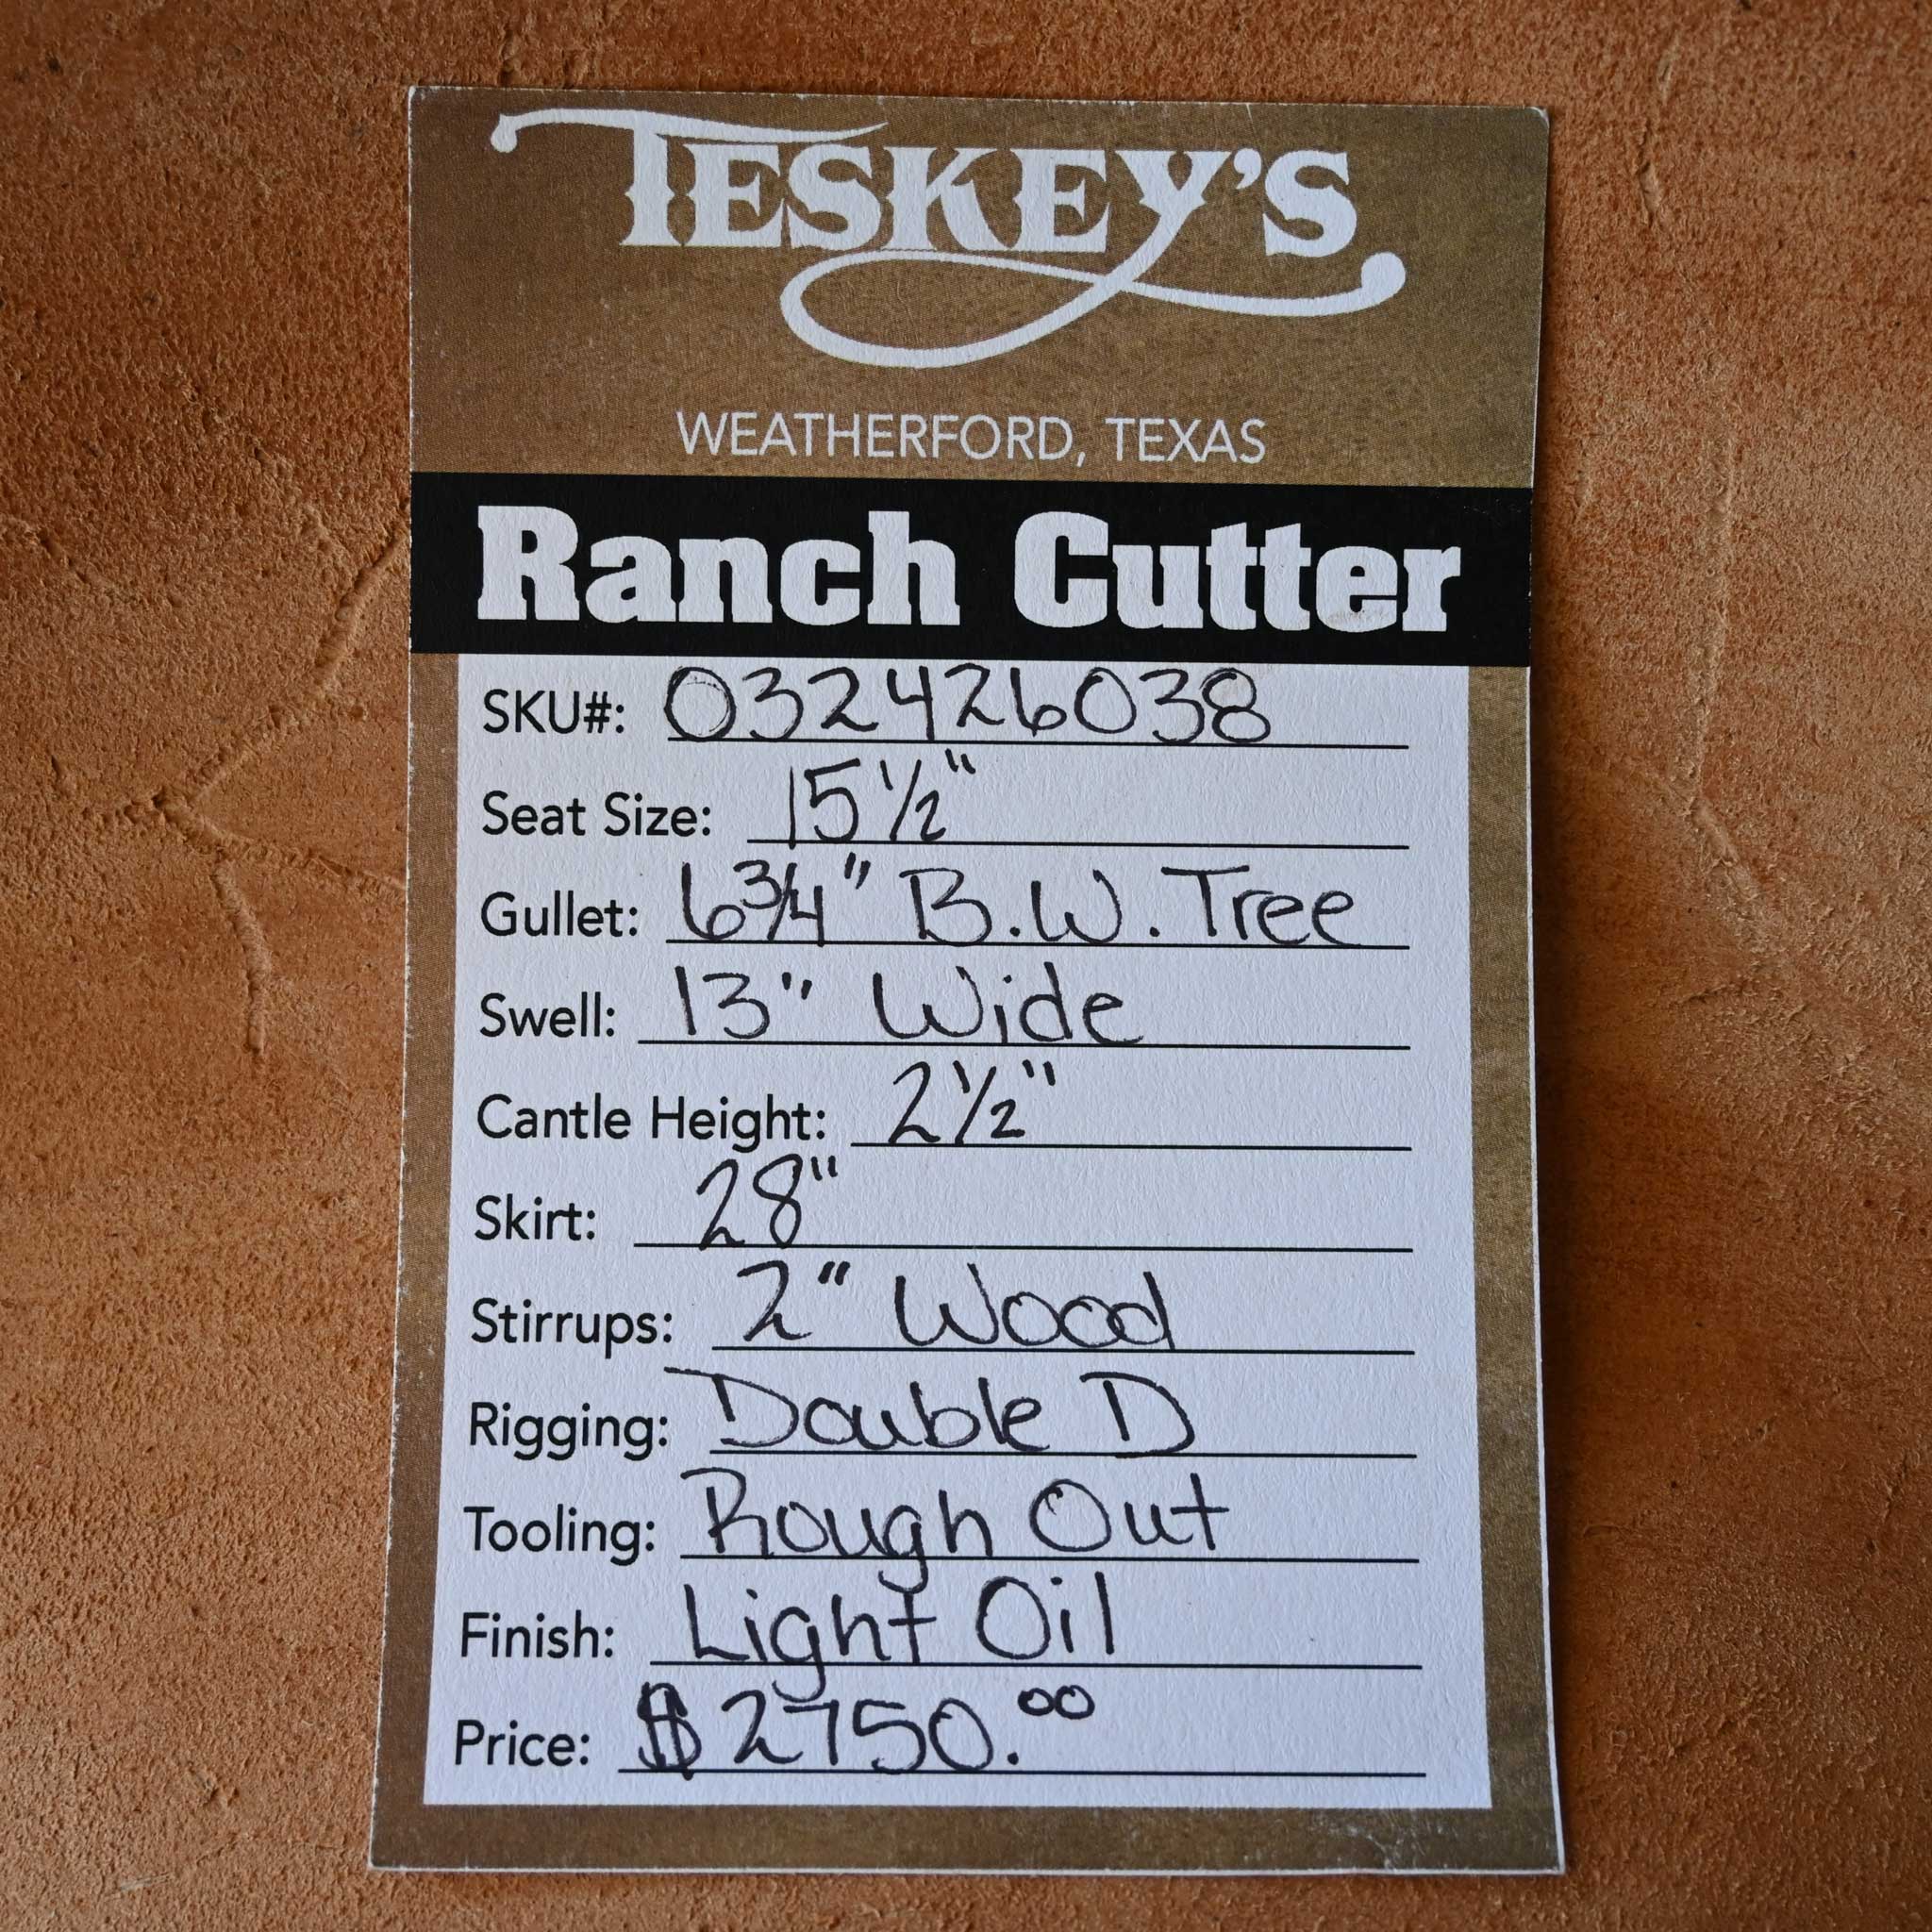 TESKEY'S
WEATHERFORD, TEXAS
Ranch Cutter
SKU#: 032426038
Seat Size: 15 1/2"
Gullet: 6 3/4" B.W. Tree
Swell: 13" Wide
Cantle Height: 2 1/2"
Skirt: 28"
Stirrups: 2" Wood
Rigging: Double D
Tooling: Rough Out
Finish: Light Oil
Price: $2750.00